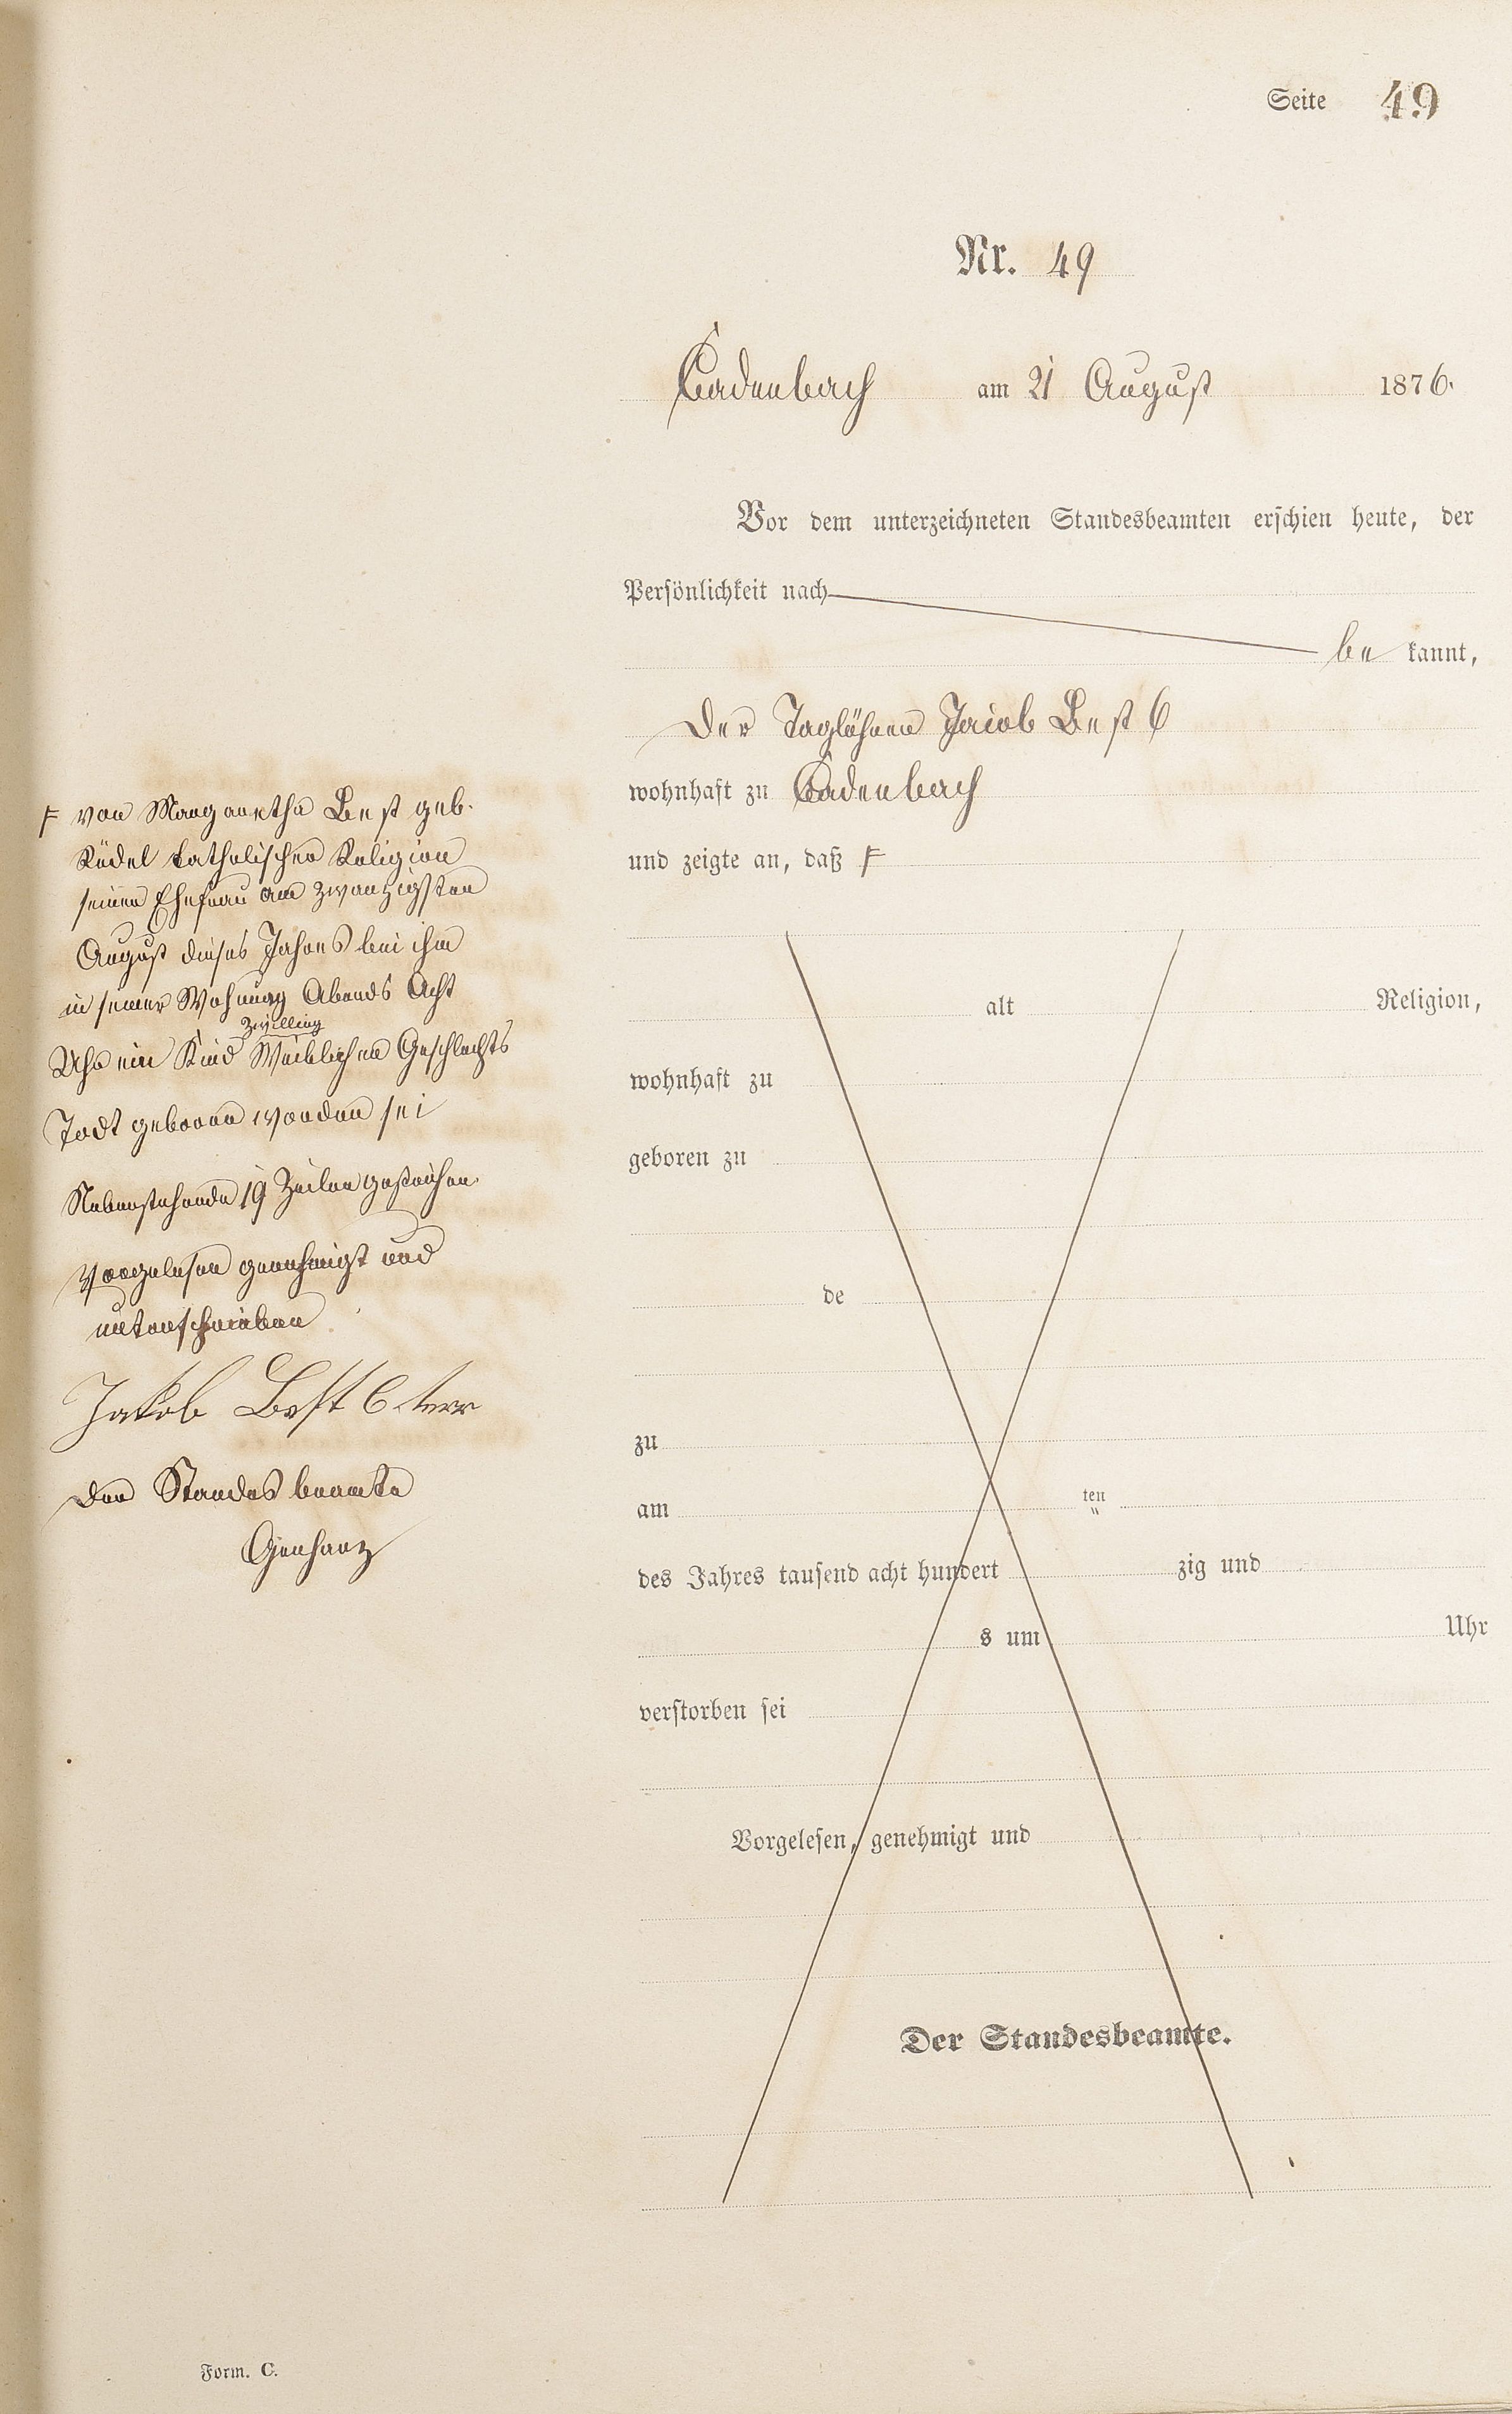 Seite 49
Nr. 49
Cadenbach am 21 August 1876.
Vor dem unterzeichneten Standesbeamten erschien heute, der
Persönlichkeit nach
be kannt,
der Taglöhner Jacob Best 6
wohnhaft zu Cadenbach
und zeigte an, daß F
alt Religion,
wohnhaft zu
geboren zu
de
zu
am ten
des Jahres tausend acht hundert zig und
s um Uhr
verstorben sei
Vorgelesen, genehmigt und
Der Standesbeamte.
F von Margaretha Best geb.
katholischer Religion
seiner Ehefrau am zwanzigsten
August dieses Jahres bei ihm
in seiner Wohnung Abends Acht
Zwilling
Uhr ein Kind Weiblichen Geschlechts
Todt geboren worden sei
Nebenstehende 19 Zeilen gestrichen.
Vorgelesen genehmigt und
unterschrieben
Jakob Best 6ter
der Standesbeamte
Gerharz
Form. C.